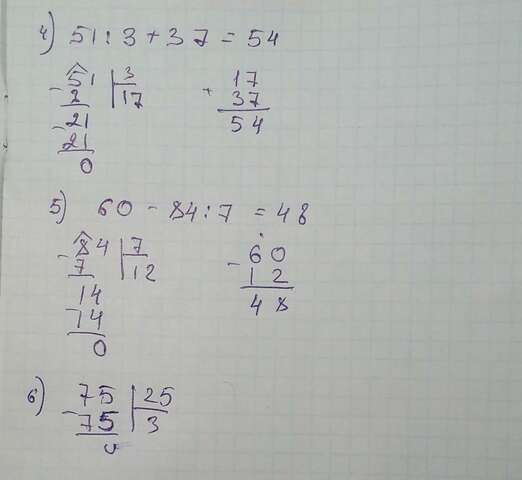 4) 51 : 3 + 37 = 54
- 51 | 3
2 | 17
- 21
21
0
+ 17
37
54
5) 60 - 84 : 7 = 48
- 84 | 7
7 | 12
- 14
14
0
- 60
12
48
6) - 75 | 25
75 | 3
0